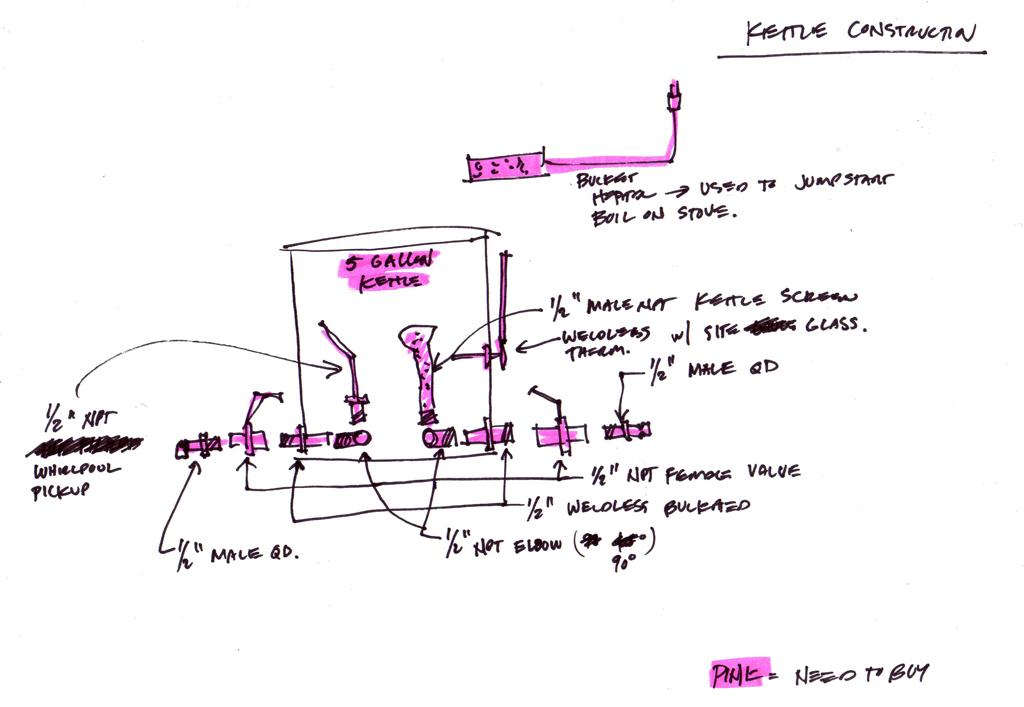 KETTLE CONSTRUCTION
BUCKET
HEATER → USED TO JUMPSTART
BOIL ON STOVE.
5 GALLON
KETTLE
1/2" MALE NPT KETTLE SCREEN
WELDLESS W/ SITE GLASS.
THERM.
1/2" MALE QD
1/2" NPT
WHIRLPOOL
PICKUP
1/2" NPT FEMALE VALVE
1/2" WELDLESS BULKHEAD
1/2" NPT ELBOW (
90°)
1/2" MALE QD.
PINK = NEED TO BUY